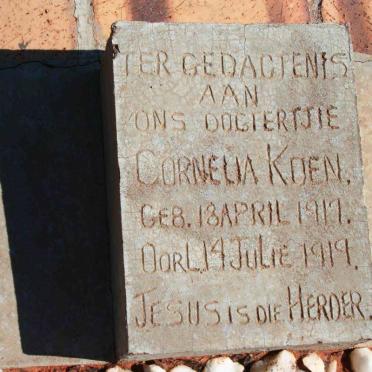 TER GEDACTENIS
AAN
ONS DOGTERTJIE
CORNELIA KOEN.
GEB. 18 APRIL 1917.
OORL. 14 JULIE 1919.
JESUS IS DIE HERDER.